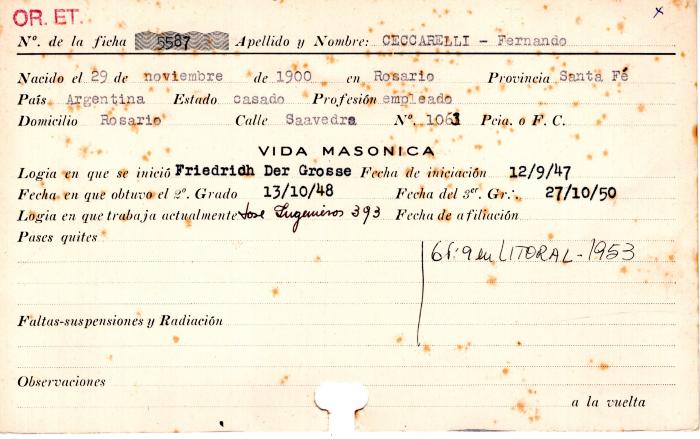 OR. ET.
x
Nº. de la ficha 5587 Apellido y Nombre: CECCARELLI - Fernando
Nacido el 29 de noviembre de 1900 en Rosario Provincia Santa Fé
País Argentina Estado casado Profesión empleado
Domicilio Rosario Calle Saavedra Nº. 1063 Pcia. o F. C.
VIDA MASONICA
Logia en que se inició Friedridh Der Grosse Fecha de iniciación 12/9/47
Fecha en que obtuvo el 2º. Grado 13/10/48 Fecha del 3er. Gr∴. 27/10/50
Logia en que trabaja actualmente Jose Ingenieros 393 Fecha de afiliación
Pases quites
en LITORAL - 1953
Faltas-suspensiones y Radiación
Observaciones
a la vuelta